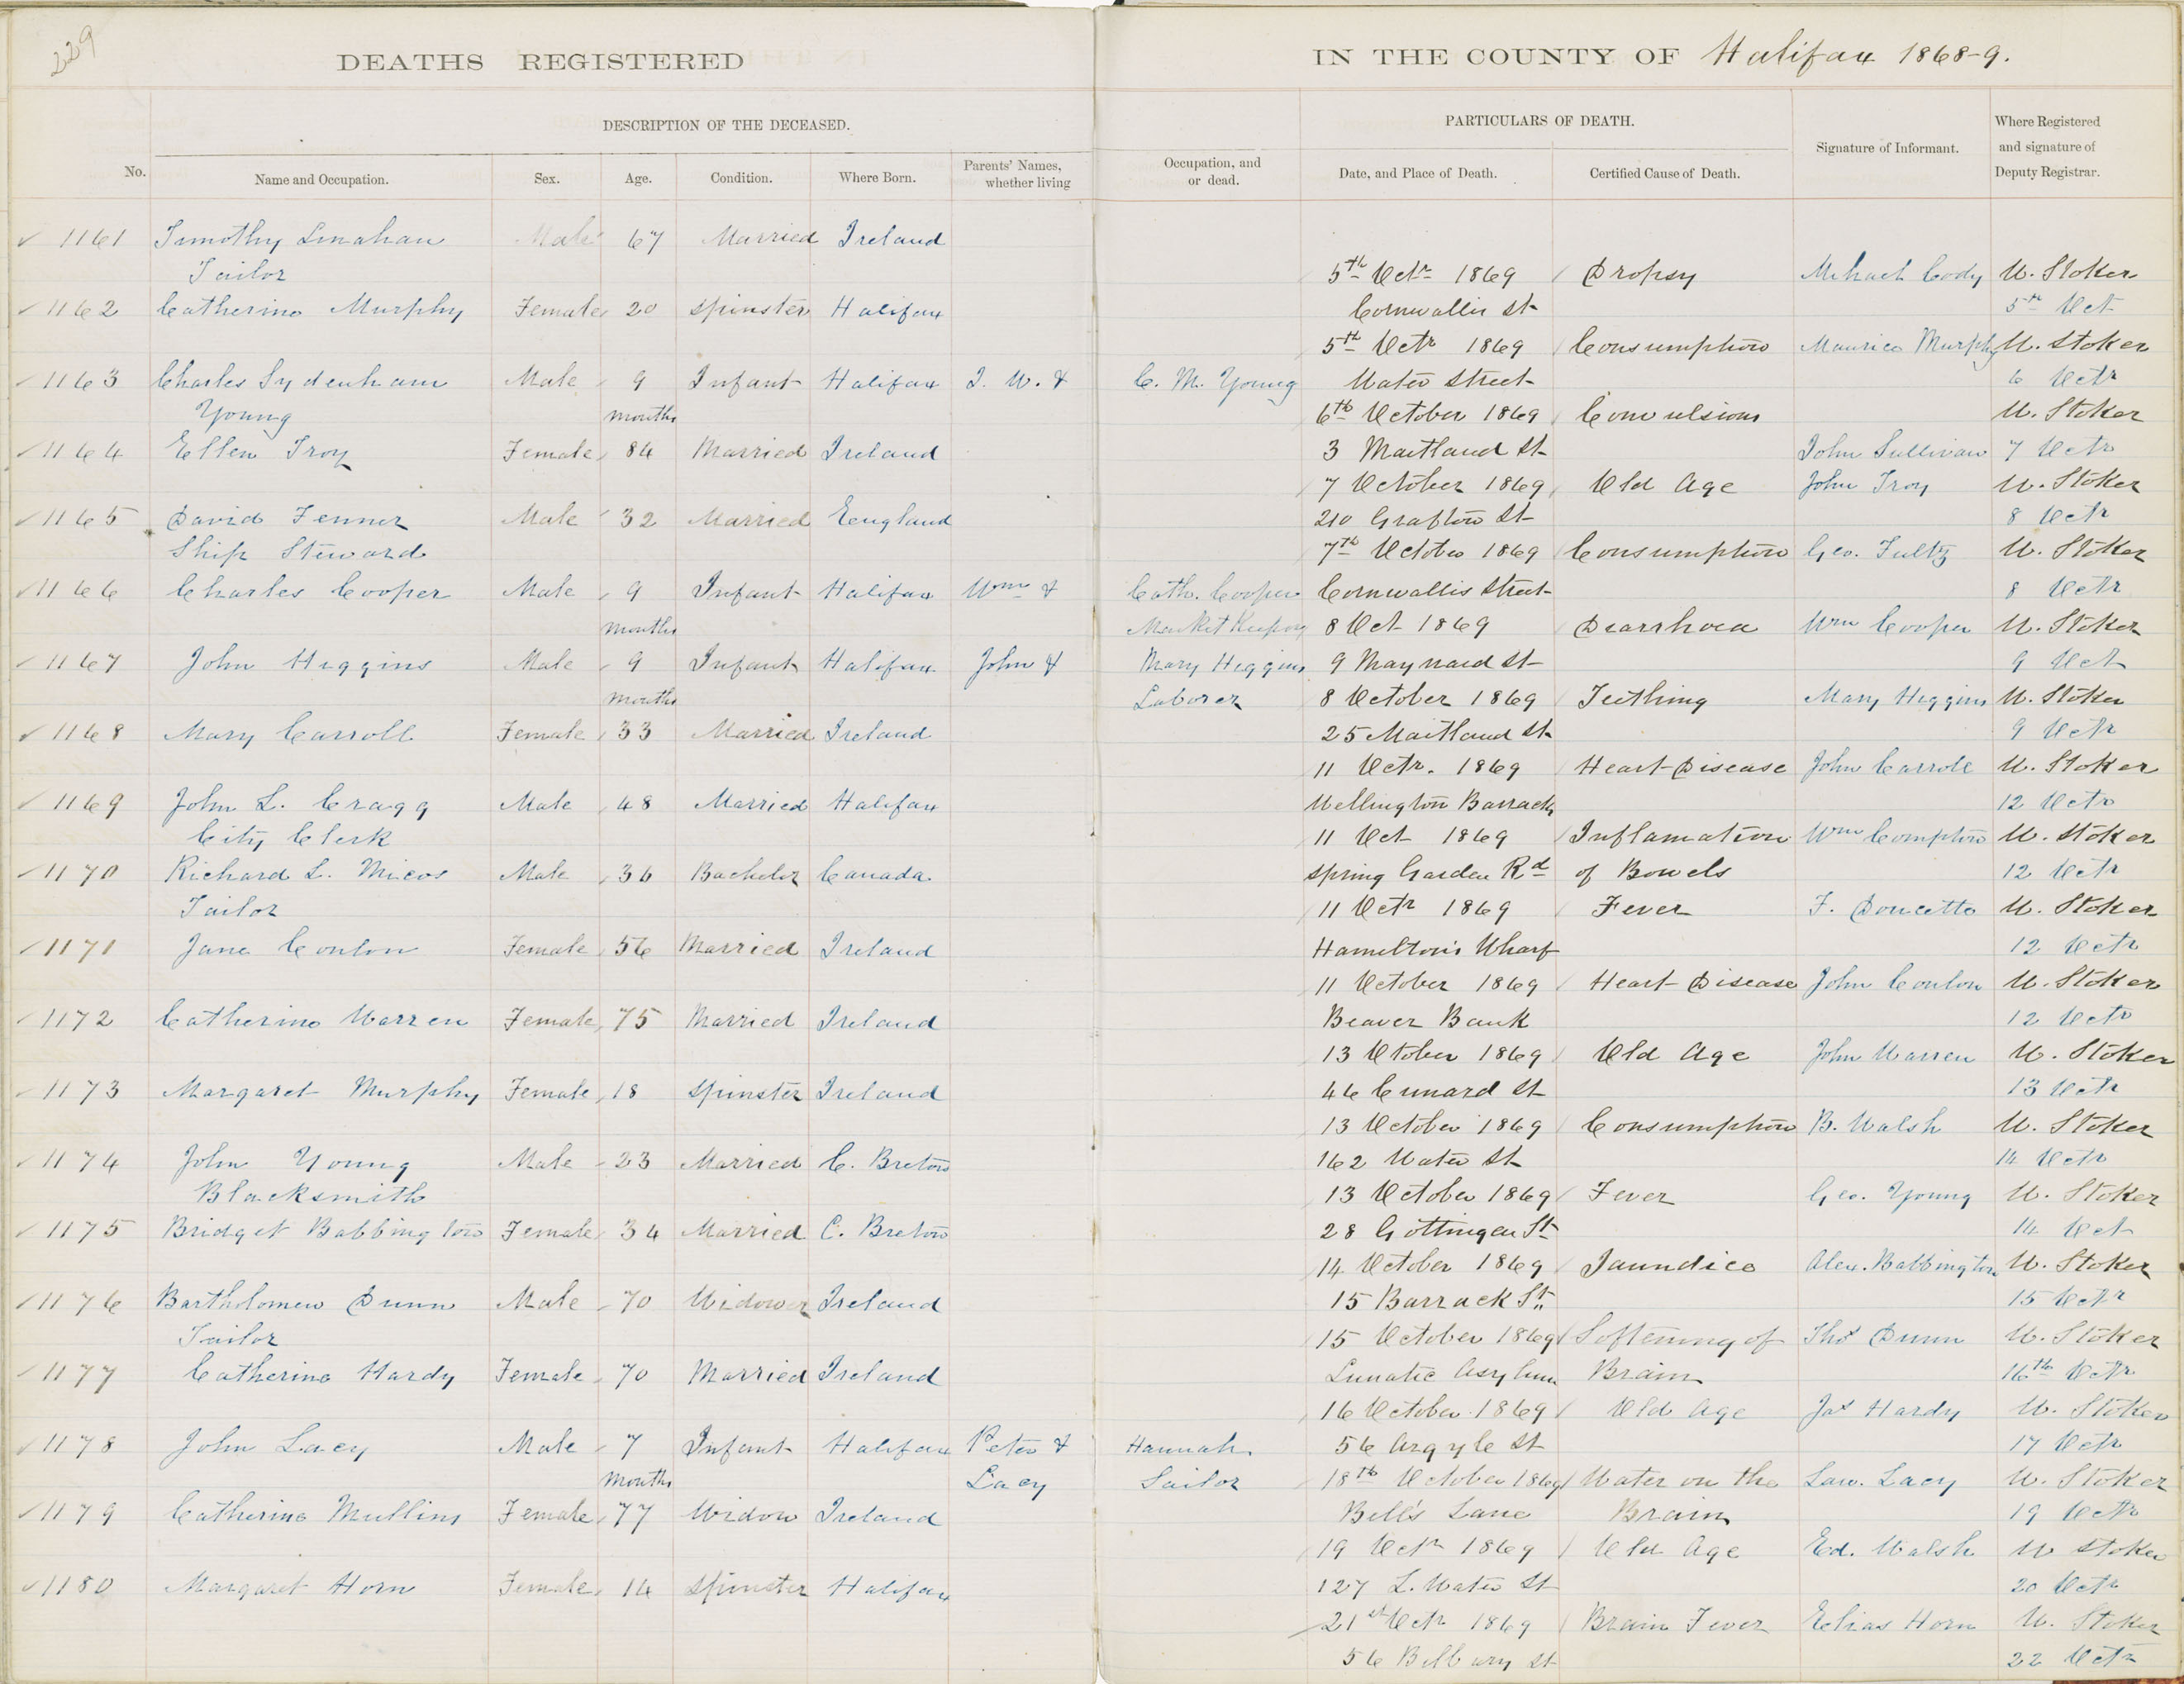 229
DEATHS REGISTERED
IN THE COUNTY OF Halifax 1868-9.
DESCRIPTION OF THE DECEASED.
PARTICULARS OF DEATH.
Signature of Informant.
Where Registered
and signature of
Deputy Registrar.
No.
Name and Occupation.
Sex.
Age.
Condition.
Where Born.
Parents' Names,
whether living
Occupation, and
or dead.
Date, and Place of Death.
Certified Cause of Death.
1161 Timothy Linahan Male 67 Married Ireland
Tailor 5th Octr 1869 Dropsy Michael Cody W. Stoker
1162 Catherine Murphy Female 20 Spinster Halifax Cornwallis St 5th Oct
5th Octr 1869 Consumption Maurice Murphy W. Stoker
1163 Charles Sydenham Male 9 Infant Halifax J. W. & C. M. Young Water Street 6 Octr
Young months 6th October 1869 Convulsions W. Stoker
1164 Ellen Troy Female 84 Married Ireland 3 Maitland St John Sullivan 7 Octr
7 October 1869 Old Age John Troy W. Stoker
1165 David Fenner Male 32 Married England 210 Grafton St 8 Octr
Ship Steward 7th October 1869 Consumption Geo. Fultz W. Stoker
1166 Charles Cooper Male 9 Infant Halifax Wm & Cath. Cooper Cornwallis Street 8 Octr
months Market Keeper 8 Oct 1869 Diarrhoea Wm Cooper W. Stoker
1167 John Higgins Male 9 Infant Halifax John & Mary Higgins 9 Maynard St 9 Oct
Months Laborer 8 October 1869 Teething Mary Higgins W. Stoker
1168 Mary Carroll Female 33 Married Ireland 25 Maitland St 9 Octr
11 Octr. 1869 Heart Disease John Carroll W. Stoker
1169 John L. Cragg Male 48 Married Halifax Wellington Barracks 12 Octr
City Clerk 11 Oct 1869 Inflamation Wm Compton W. Stoker
1170 Richard L. Male 36 Bachelor Canada Spring Garden Rd of Bowels 12 Octr
Tailor 11 Octr 1869 Fever F. Doucette W. Stoker
1171 Jane Conlon Female 56 Married Ireland Hamilton's Wharf 12 Octr
11 October 1869 Heart Disease John Conlon W. Stoker
1172 Catherine Warren Female 75 Married Ireland Beaver Bank 12 Octr
13 Otober 1869 Old Age John Warren W. Stoker
1173 Margaret Murphy Female 18 Spinster Ireland 46 Cunard St 13 Octr
13 October 1869 Consumption B. Walsh W. Stoker
1174 John Young Male 23 Married C. Breton 162 Water St 14 Octr
Blacksmith 13 October 1869 Fever Geo. Young W. Stoker
1175 Bridget Babbington Female 34 Married C. Breton 28 Gottingen St 14 Oct
14 October 1869 Jaundice Alex. Babbington W. Stoker
1176 Bartholomew Dunn Male 70 Widower Ireland 15 Barrack St. 15 Octr
Tailor 15 October 1869 Softening of Thos Dunn W. Stoker
1177 Catherine Hardy Female 70 Married Ireland Lunatic Asylum Brain 16th Octr
16 October 1869 Old Age Jas Hardy W. Stoker
1178 John Lacy Male 7 Infant Halifax Peter & Hannah 56 Argyle St 17 Octr
Months Lacy Sailor 18th October 1869 Water on the Law. Lacy W. Stoker
1179 Catherine Mullins Female 77 Widow Ireland Bell's Lane Brain 19 Octr
19 Octr 1869 Old Age Ed. Walsh W Stoker
1180 Margaret Horn Female 14 Spinster Halifax 127 L. Water St 20 Octr
21st Octr 1869 Brain Fever Elias Horn W. Stoker
56 Bilbury St 22 Octr